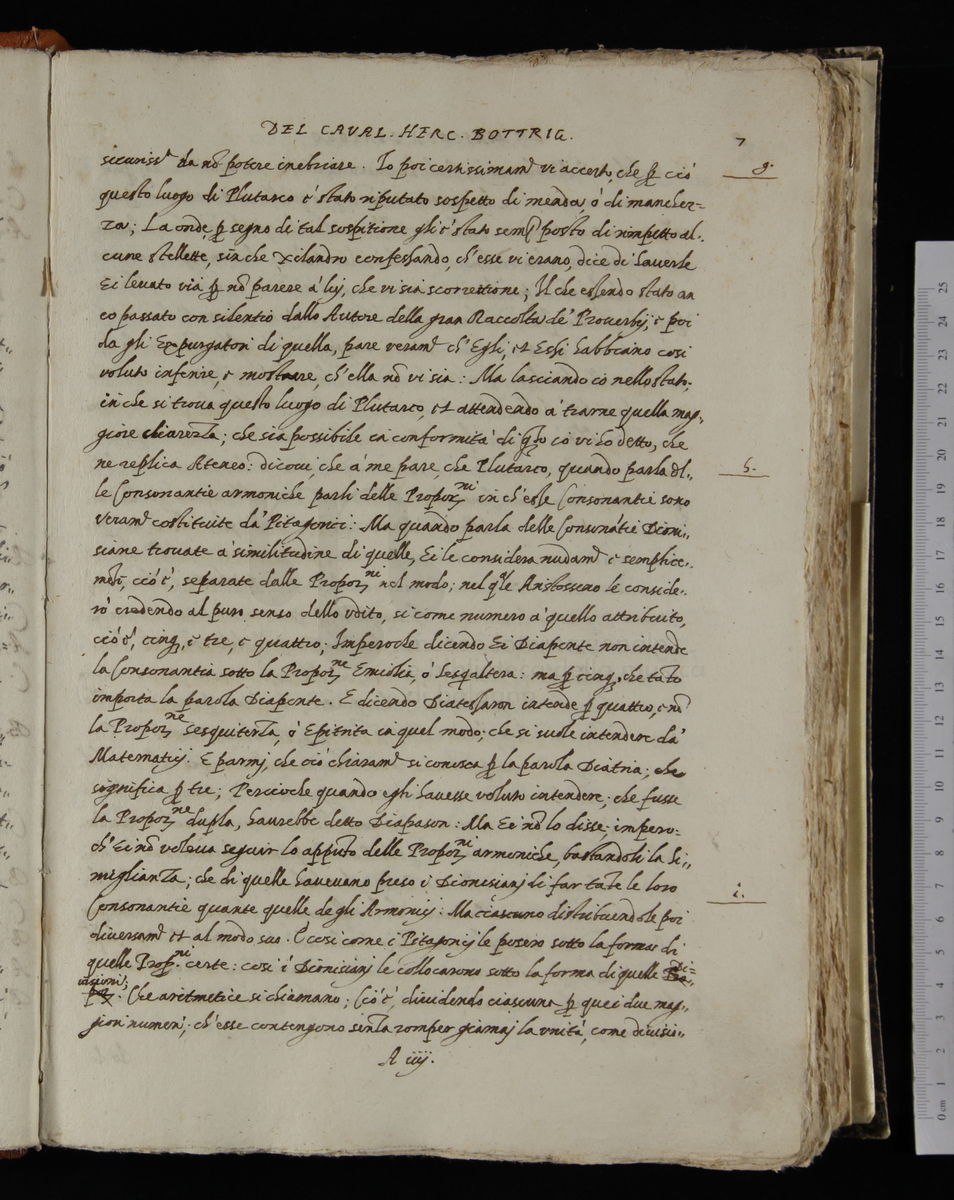 DEL CAVAL. HERC. BOTTRIG.
7
securiss.e da nõ potere inebriare. Io poi certissimam.e vi accerto, che p ciò
g.
questo luogo di Plutarco è stato riputato sospetto di menda, ò di mancher=
za; La onde, p segno di tal sospitione gli è stato semp posto di rimpetto al..
cune stellette, sin che Xilandro confessando, ch'esse vi erano, dice di haverle
Ei levato via p nõ parere à lui, che vi sia scorrettione; Il che essendo stato an
co passato con silentio dallo Autore della gran Raccolta de' Proverbij, e poi
da gli Expurgatori di quella, pare veram.e ch'Egli, et Essi habbiano così
voluto inferire, e mostrare, ch'ella nõ vi sia: Ma lasciando cò nello stato,
in che si trova questo luogo di Plutarco, et attendendo à trarne quella mag,
giore chiarezza; che sia possibile in conformità di qto io vi ho detto, che
ne replica Ateneo: dicovi, che à me pare, che Plutarco, quando parla del..
h.
le Consonantie armoniche parli delle Proporz.ni in ch'esse Consonantie sono
veram.e costituite da' Pitagorici: Ma quando parla delle Consonãtie Dioni,,
siane trovate à similitudine di quelle, Ei le considera nudam.e e semplice..
mẽte, cio è, separate dalle Proporz.ni nel modo; nel qle Aristosseno le conside..
rò credendo al puro senso dello udito, si come numero à quello attribuito,
cio è, cinq, e tre, e quattro; Imperoche dicendo Ei Diapente non intende
la Consonantia sotto la Proporz.ne Emiolia, ò Sesqaltera: ma p cinq, che tãto
importa la parola Diapente. E dicendo Diatessaron intende p quattro, e nõ
la Proporz.ne sesquiterza, ò Epitrita in quel modo; che si suole intendere da'
Matematici. E parmi, che ciò chiaram.e si conosca p la parola Diatria; che
significa p tre; Percioche quando egli havesse voluto intendere; che fusse
la Proporz.ne dupla, haurebbe detto Diapason: Ma Ei nõ lo disse; impero=
ch'Ei nõ voleva seguir lo apputo delle Proporz.ni armoniche, bastandoli la Si,,
miglianza; che di quelle havevano preso i Dionisianj di far tãte le loro
i.
Consonantie quante quelle de gli Armonici: Ma ciascuno distribuendole poi
diversam.e et al modo suo. E così come i Pitagorici le posero sotto la forma di
quelle Prop.ni certe: così i Dionisianj le collocarono sotto la forma di quelle Di=
visioni;
Che aritmetice si chiamano; Cio è, dividendo ciascuna p quei due mag,,
giori numeri; ch'esse contengono senza romper giamaj la unità, come divisio,,
A iiij.